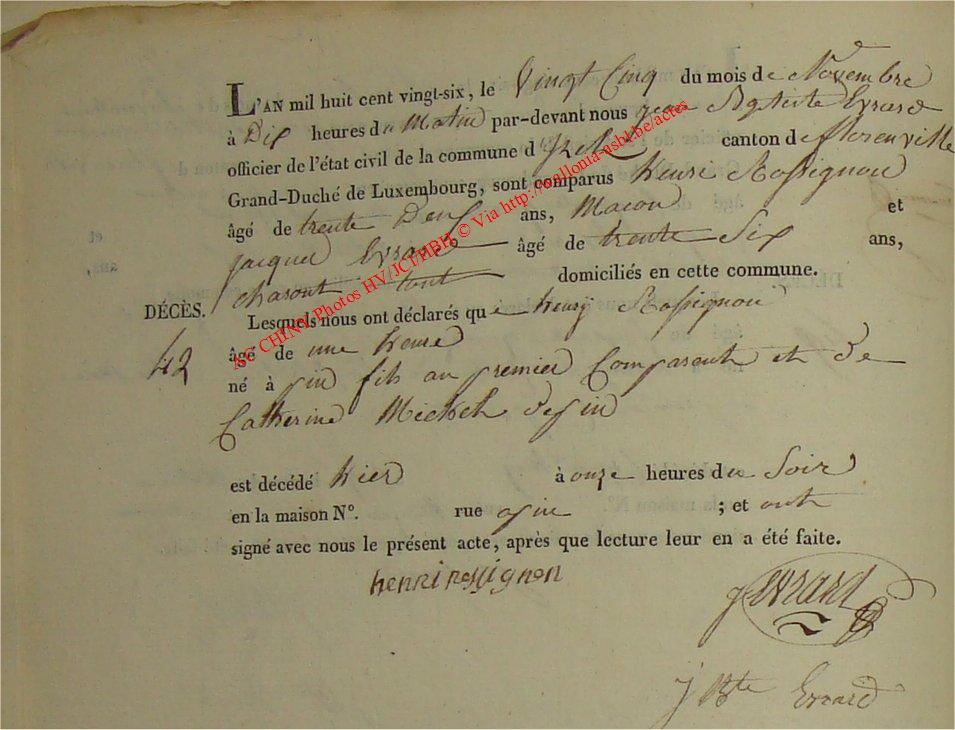 L'AN mil huit cent vingt-six, le Vingt Cinq du mois de Novembre
à Dix heures du Matin par-devant nous jean Bptiste Evrard
officier de l'état civil de la commune d' canton de florenville
Grand-Duché de Luxembourg, sont comparus henri Rossignon
âgé de trente Deux ans, Macon et
jacque Evrard âgé de trente Six ans,
charont tout domiciliés en cette commune.
DÉCÈS.
Lesquels nous ont déclarés que henry Rossignon
42
âgé de une heure
né à pin fils au premier Comparent et de
Catherine Michel de pin
est décédé hier à onze heures du Soir
en la maison N°. rue a pin ; et ont
signé avec nous le présent acte, après que lecture leur en a été faite.
henri rossignon
j evrard
j Bte Evrard
CHINY Photos HV/JCT/MBH © Via http://wallonia-asbl.be/actes